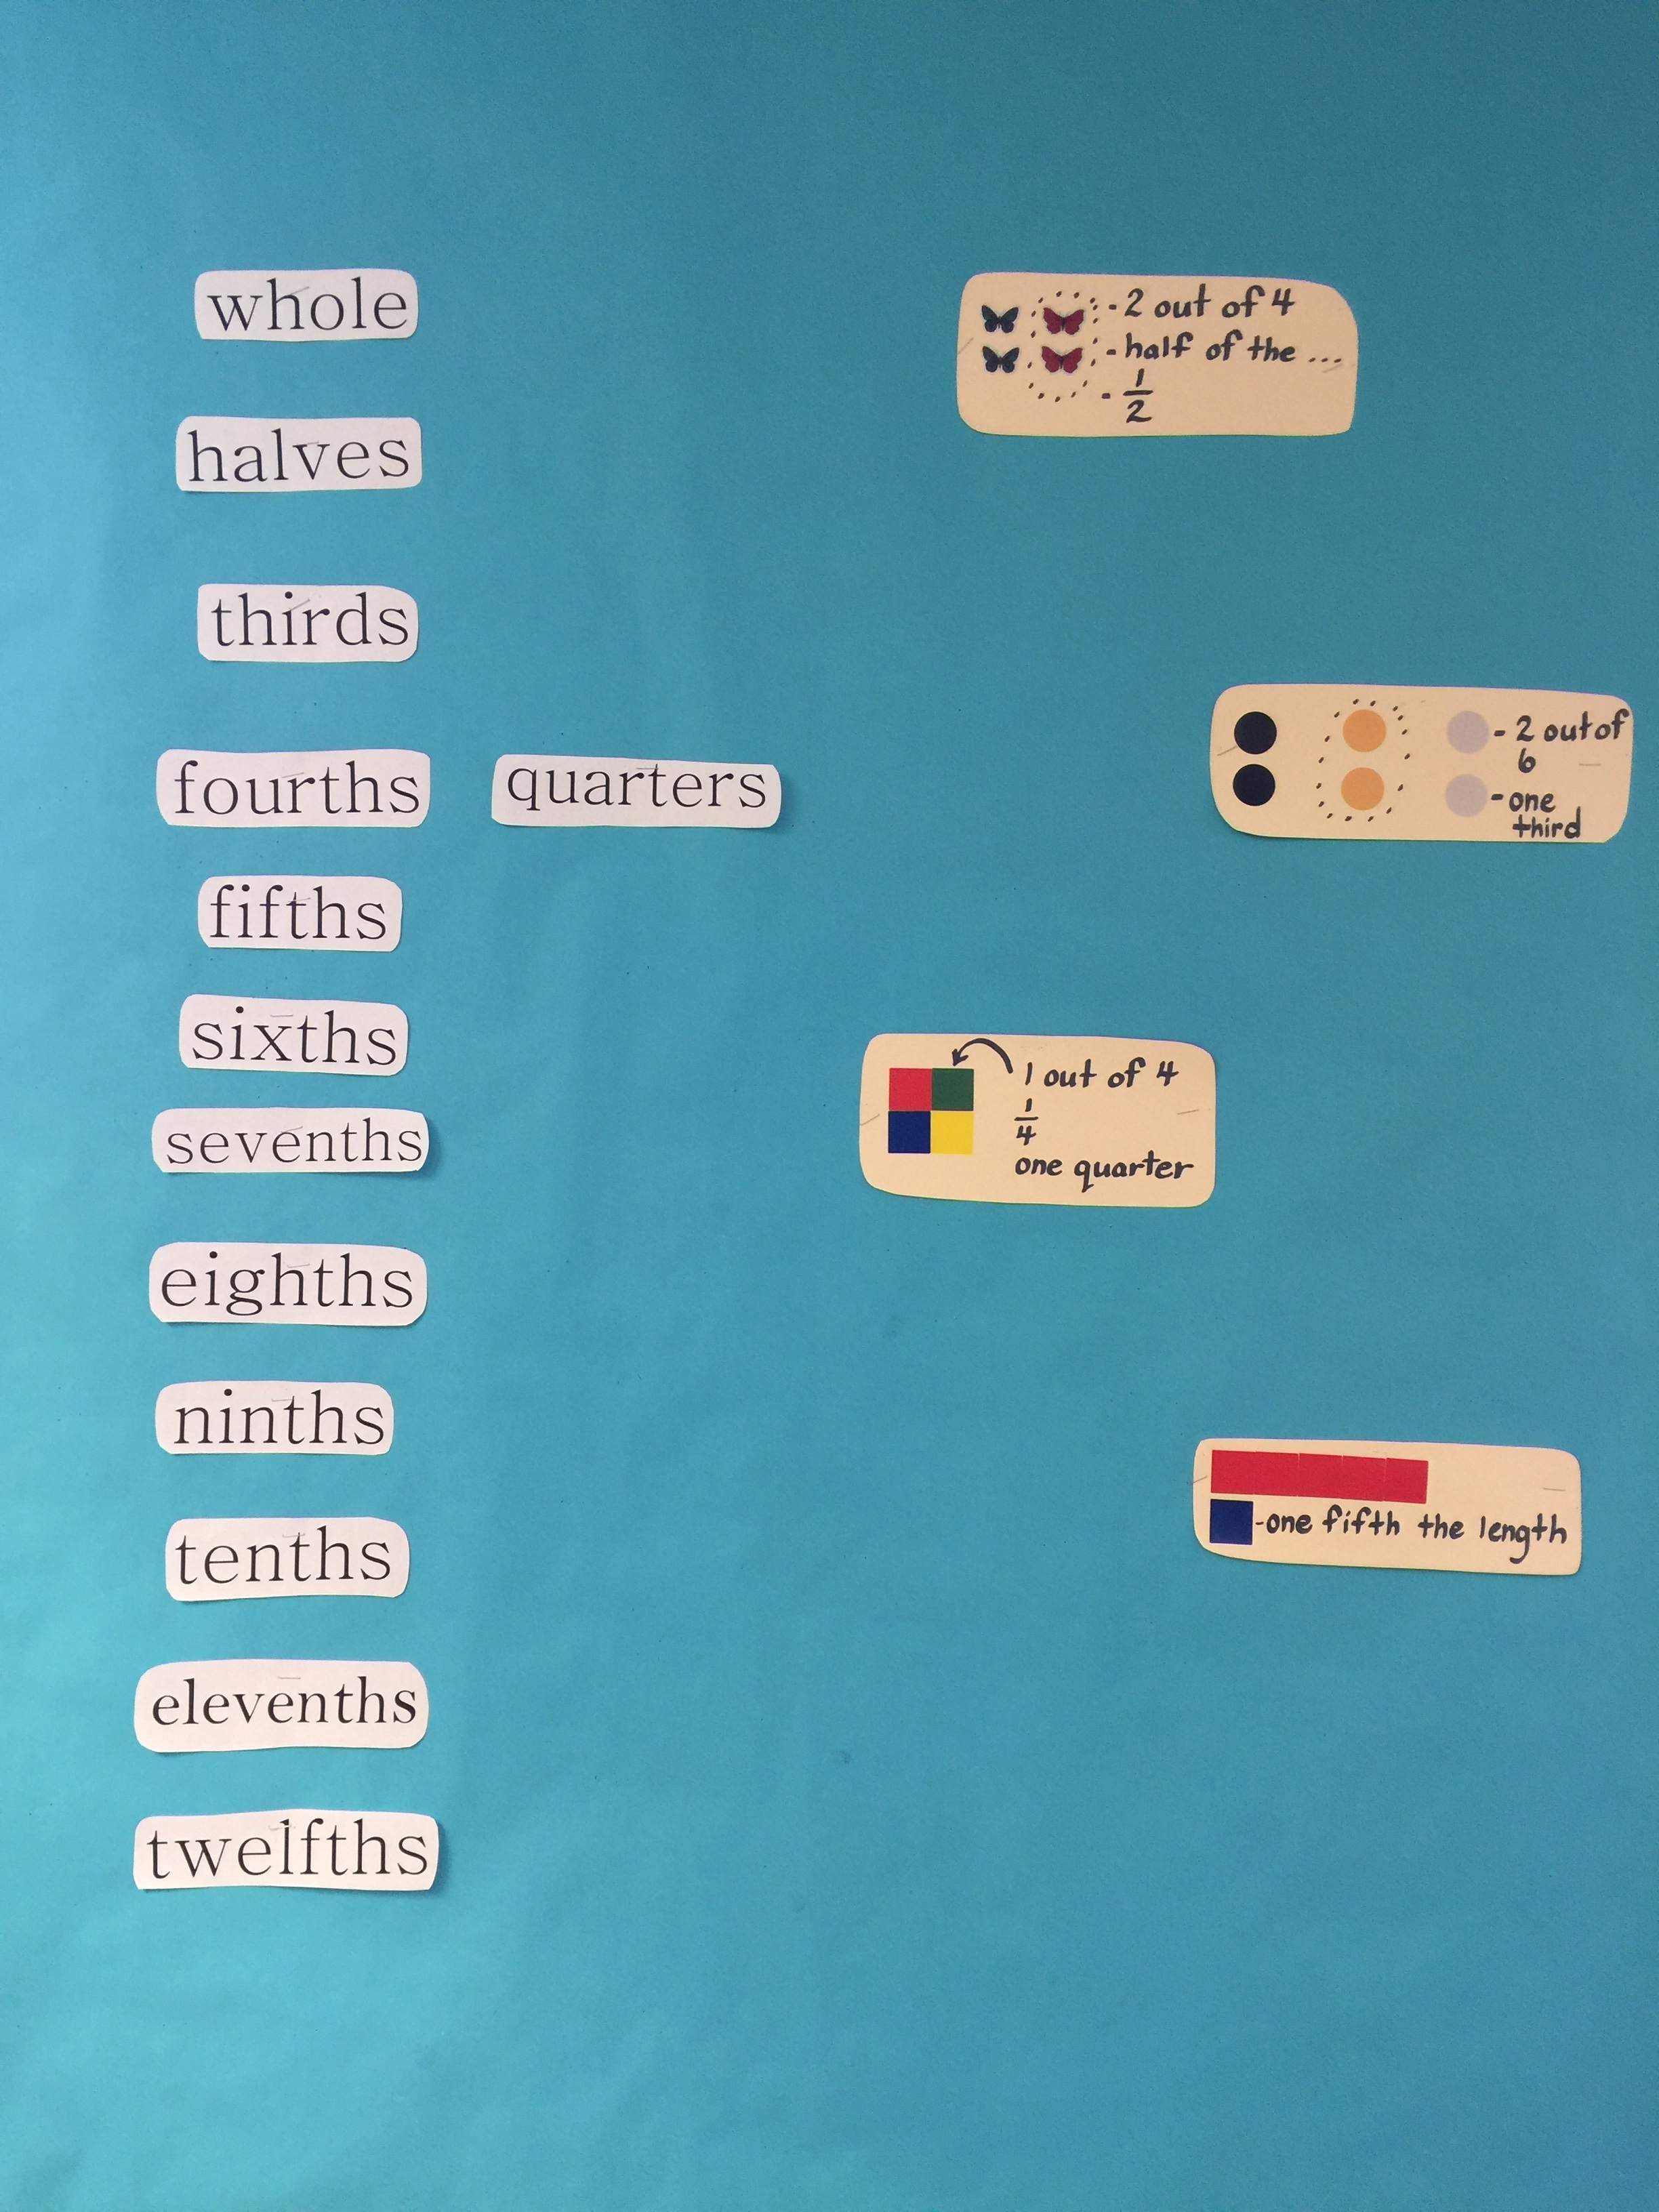 whole
halves
thirds
fourths quarters
fifths
sixths
sevenths
eighths
ninths
tenths
elevenths
twelfths
- 2 out of 4
- half of the ...
- 1/2
- 2 out of
6
- one
third
1 out of 4
1/4
one quarter
- one fifth the length